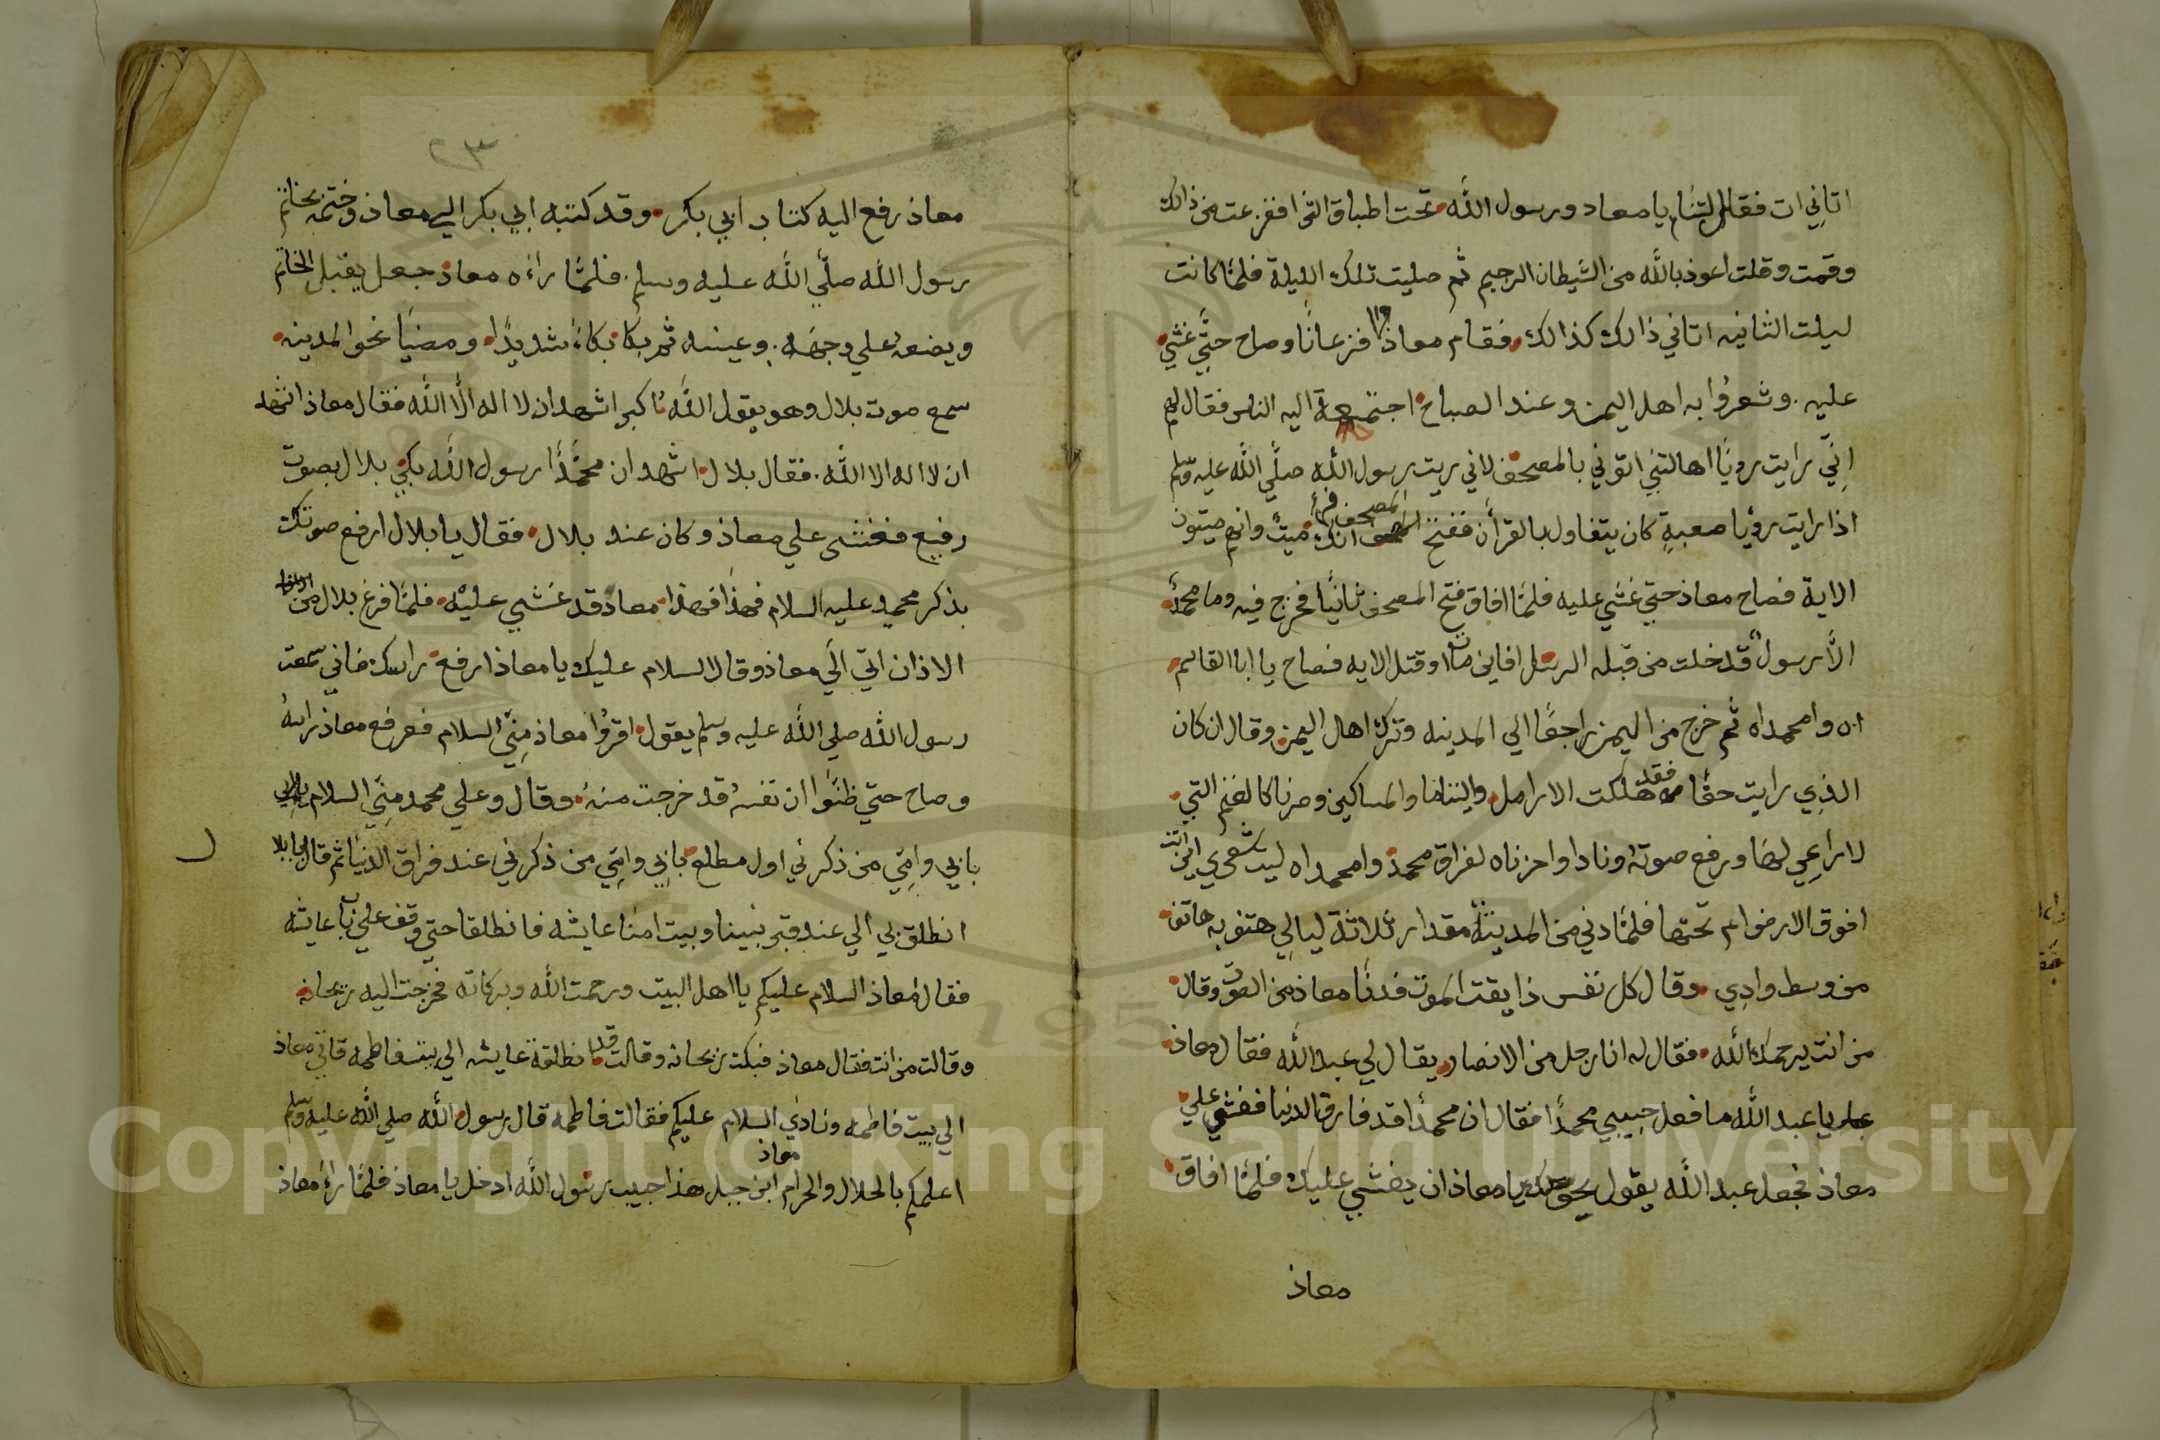 اتاني ات فقال لتنام يا معاد ورسول الله تحت اطباق الثرا ففزعت من ذالك
وقمت وقلت اعوذ بالله من الشيطان الرجيم ثم صليت تلك الليلة فلما كانت
ليلت الثانيه اتاني ذالك كذالك فقام معاذ فزعانا وصاح حتي غشي
عليه وشعروا به اهل اليمن وعند الصباح اجتمعة اليه الناس فقال لهم
اني رايت رويا اهالتني اتوني بالمصحف لاني ريت رسول الله صلي الله عليه وسلم
اذا رايت رؤيا صعبة كان يتفاول بالقرأن ففتح المصحف فراء انك ميت وانهم ميتون
الاية فصاح معاذ حتي غشي عليه فلما افاق فتح المصحف ثانيا فخرج فيه وما محمد
الا رسول قد خلت من قبله الرسل افاين مات اوقتل الايه فصاح يا ابا القاسم
اه وا محمداه ثم خرج من اليمن راجعا الي المدينه وترك اهل اليمن وقال ان كان
الذي رايت حقا فقد هلكت الارامل واليتاما والمساكين وصرنا كالغنم التي
لا راعي لها ورفع صوته ونادا واحزناه لفراق محمد وا محمداه ليت شعري اين انت
افوق الارض ام تحتها فلما دني من المدينة مقدار ثلاثة ليالي هتف به هاتف
من وسط وادي وقال كل نفس ذايقت الموت فدنا معاذ من الصوت وقال
من انت يرحمك الله فقال له انا رجل من الانصار يقال لي عبد الله فقال معاذ
يا عبد الله ما فعل حبيبي محمدا فقال ان محمدا قد فارق الدنيا فغشي علي
معاذ فجعل عبد الله يقول يحق لك يا معاذ ان يغشي عليك فلما افاق
معاذ
٢٣
معاذ رفع اليه كتاب ابي بكر وقد كتبه ابي بكر الي معاذ وختمه بخاتم
رسول الله صلي الله عليه وسلم فلما راءه معاذ جعل يقبل الخاتم
ويضعه علي وجهه وعينه ثم بكا بكاء شديدا ومضيا نحو المدينه
سمع صوت بلال وهو يقول الله اكبر اشهد ان لا اله الا الله فقال معاذ اشهد
ان لا اله الا الله فقال بلال اشهد ان محمدا رسول الله بكي بلال بصوت
رفيع فغشي علي معاذ وكان عند بلال فقال يا بلال ارفع صوتك
بذكر محمد عليه السلام فهذا معاذ قد غشي عليه فلما فرغ بلال من
الاذان اتي الي معاذ وقال السلام عليك يا معاذ ارفع راسك فاني سمعت
رسول الله صلي الله عليه وسلم يقول اقرؤا معاذ مني السلام فرفع معاذ راسه
وصاح حتي ظنوا ان نفسه قد خرجت منه وقال وعلي محمد مني السلام
بابي وامي من ذكرني اول مطلع بابي وامي من ذكرني عند فراق الدنيا ثم قال يا بلال
انطلق بي الي عند قبر نبينا وبيت امنا عايشه فانطلقا حتي وقف علي باب عايشه
فقال معاذ السلام عليكم يا اهل البيت ورحمت الله وبركاته فخرجت اليه ريحانه
وقالت من انت فقال معاذ فبكت ريحانه وقالت قد انطلقة عايشه الي بيت فاطمه فاتي معاذ
الي بيت فاطمه ونادي السلام عليكم فقالت فاطمه قال رسول الله صلي الله عليه وسلم
اعلمكم بالحلال والحرام معاذ ابن جبل هذا حبيب رسول الله ادخل يا معاذ فلما راء معاذ
Copyright © King Saud University
1957